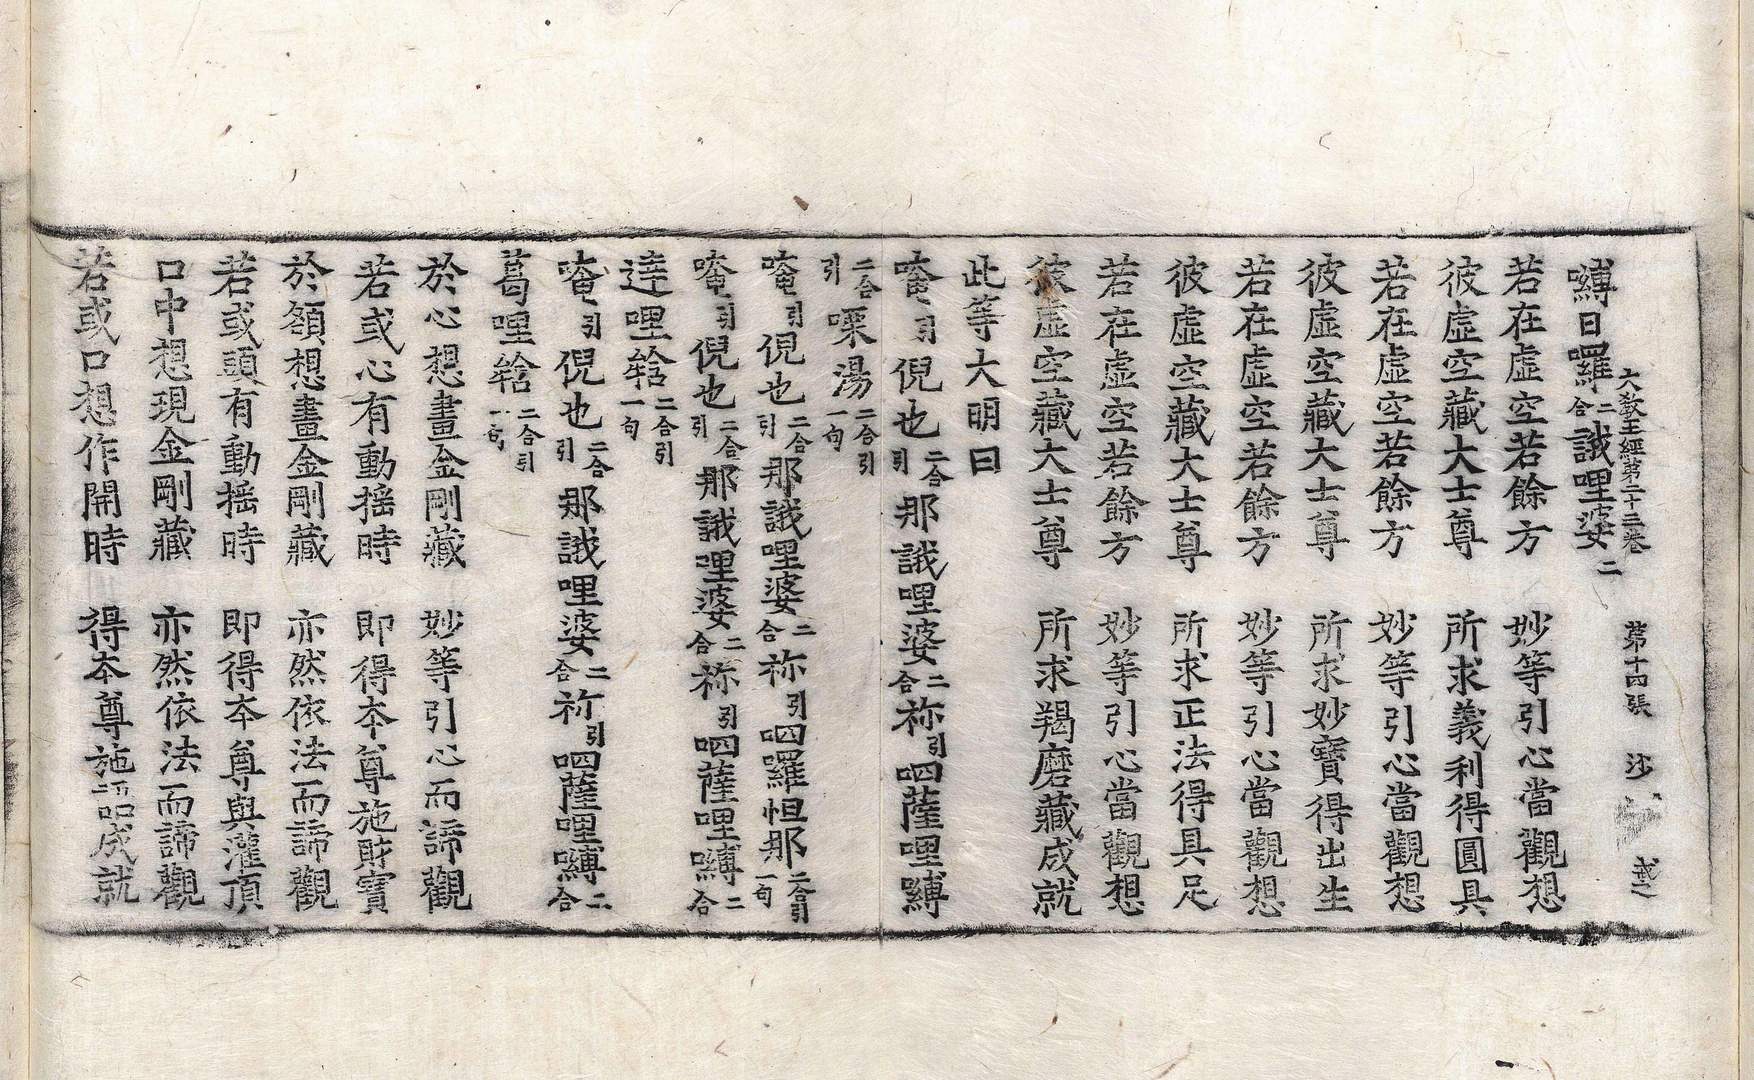 大教王經第二十三卷 第十四張 沙
嚩日囉二合誐哩婆二
若在虛空若餘方 妙等引心當觀想
彼虛空藏大士尊 所求義利得圓具
若在虛空若餘方 妙等引心當觀想
彼虛空藏大士尊 所求妙寶得出生
若在虛空若餘方 妙等引心當觀想
彼虛空藏大士尊 所求正法得具足
若在虛空若餘方 妙等引心當觀想
彼虛空藏大士尊 所求羯磨藏成就
此等大明曰
唵引倪也二合引那誐哩婆二合祢引呬薩哩嚩
二合引㗚湯二合引一句
唵引倪也二合引那誐哩婆二合祢引呬羅怛那二合引一句
唵引倪也二合引那誐哩婆二合祢引呬薩哩嚩二合
達哩𤚥二合引一句
唵引倪也二合引那誐哩婆二合祢引呬薩哩嚩二合
葛哩𤚥二合引一句
於心想畫金剛藏 妙等引心而諦觀
若或心有動搖時 即得本尊施財寶
於額想畫金剛藏 亦然依法而諦觀
若或頭有動搖時 即得本尊與灌頂
口中想現金剛藏 亦然依法而諦觀
若或口想作開時 得本尊施語成就